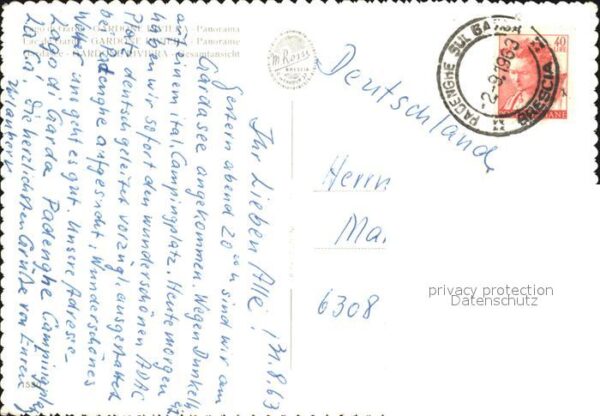 Lago di Garda - GARDONE RIVIERA - Panorama
GARDONE RIVIERA - Panorame
GARDONE RIVIERA - Gesamtansicht
M. Rossi
BRESCIA
PADENGHE SUL GARDA
-2-9.1963
BRESCIA
40
Deutschland
Herrn
Ma.
6308
privacy protection
Datenschutz
31.8.63
Ihr Lieben Alle!
Gestern abend 20 Uhr sind wir am
Gardasee angekommen. Wegen Dunkelh.
auf einem ital. Campingplatz. Heute morgen
haben wir sofort den wunderschönen ADAC
Platz deutsch geleitet vorzügl. ausgestattet
Padenghe aufgesucht, Wunderschönes
Wetter uns geht es gut. Unsere Adresse
Lago di Garda Padenghe Campingpl.
La Ca! Die herzlichsten Grüße von Euren